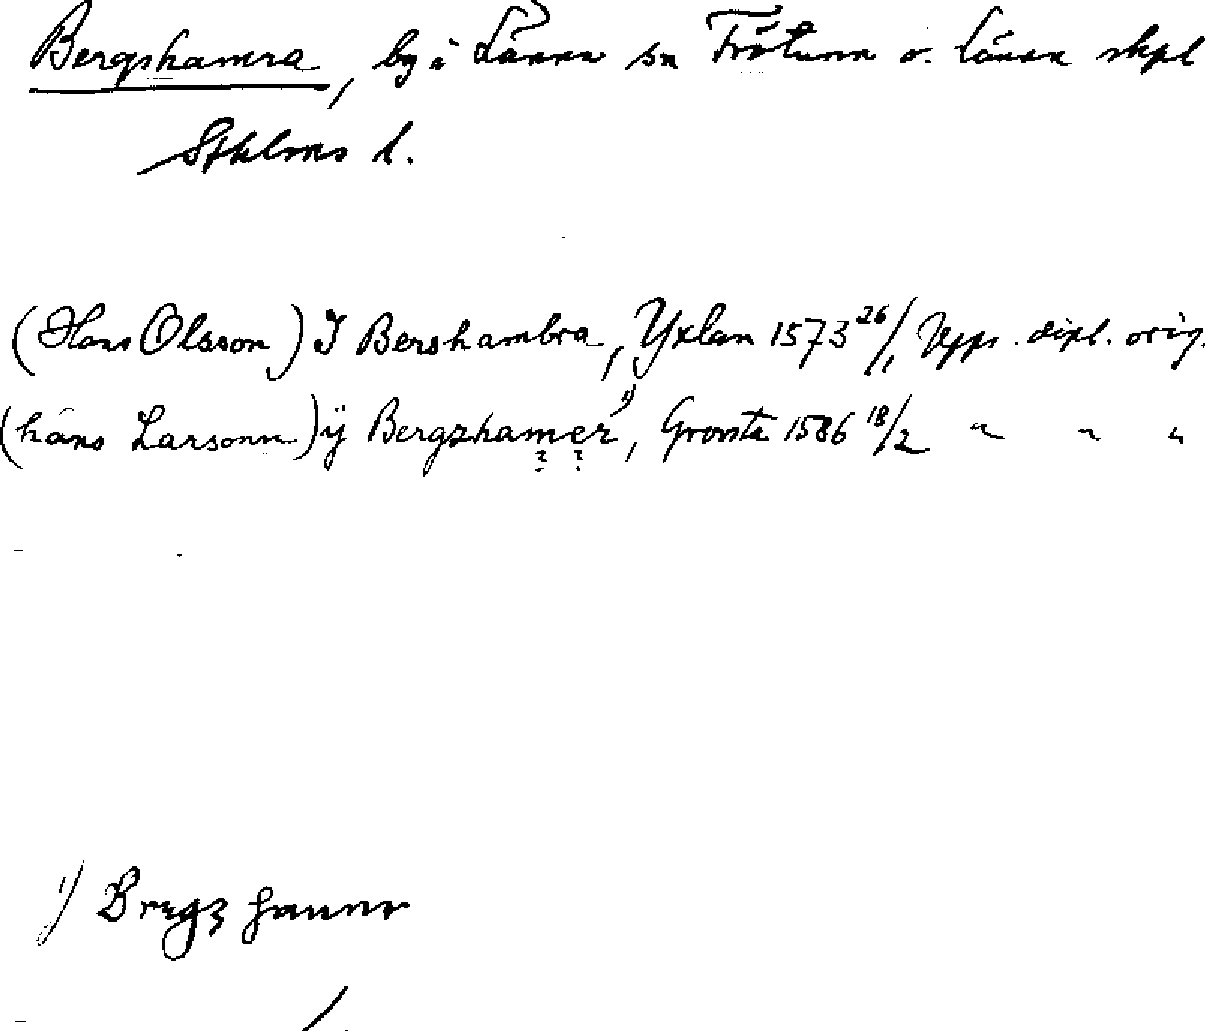 Bergshamra, by i Länna sn Frötuna o. Länna skpl
Sthlms l.
(Hans Olsson) I Bershambra, Yxlan 1573 26/1 Upps. dipl. orig.
(häns Larsonn) ÿ Bergzhamer 1), Gronsta 1586 18/2 " " "
? ?
1) Bregzhamr